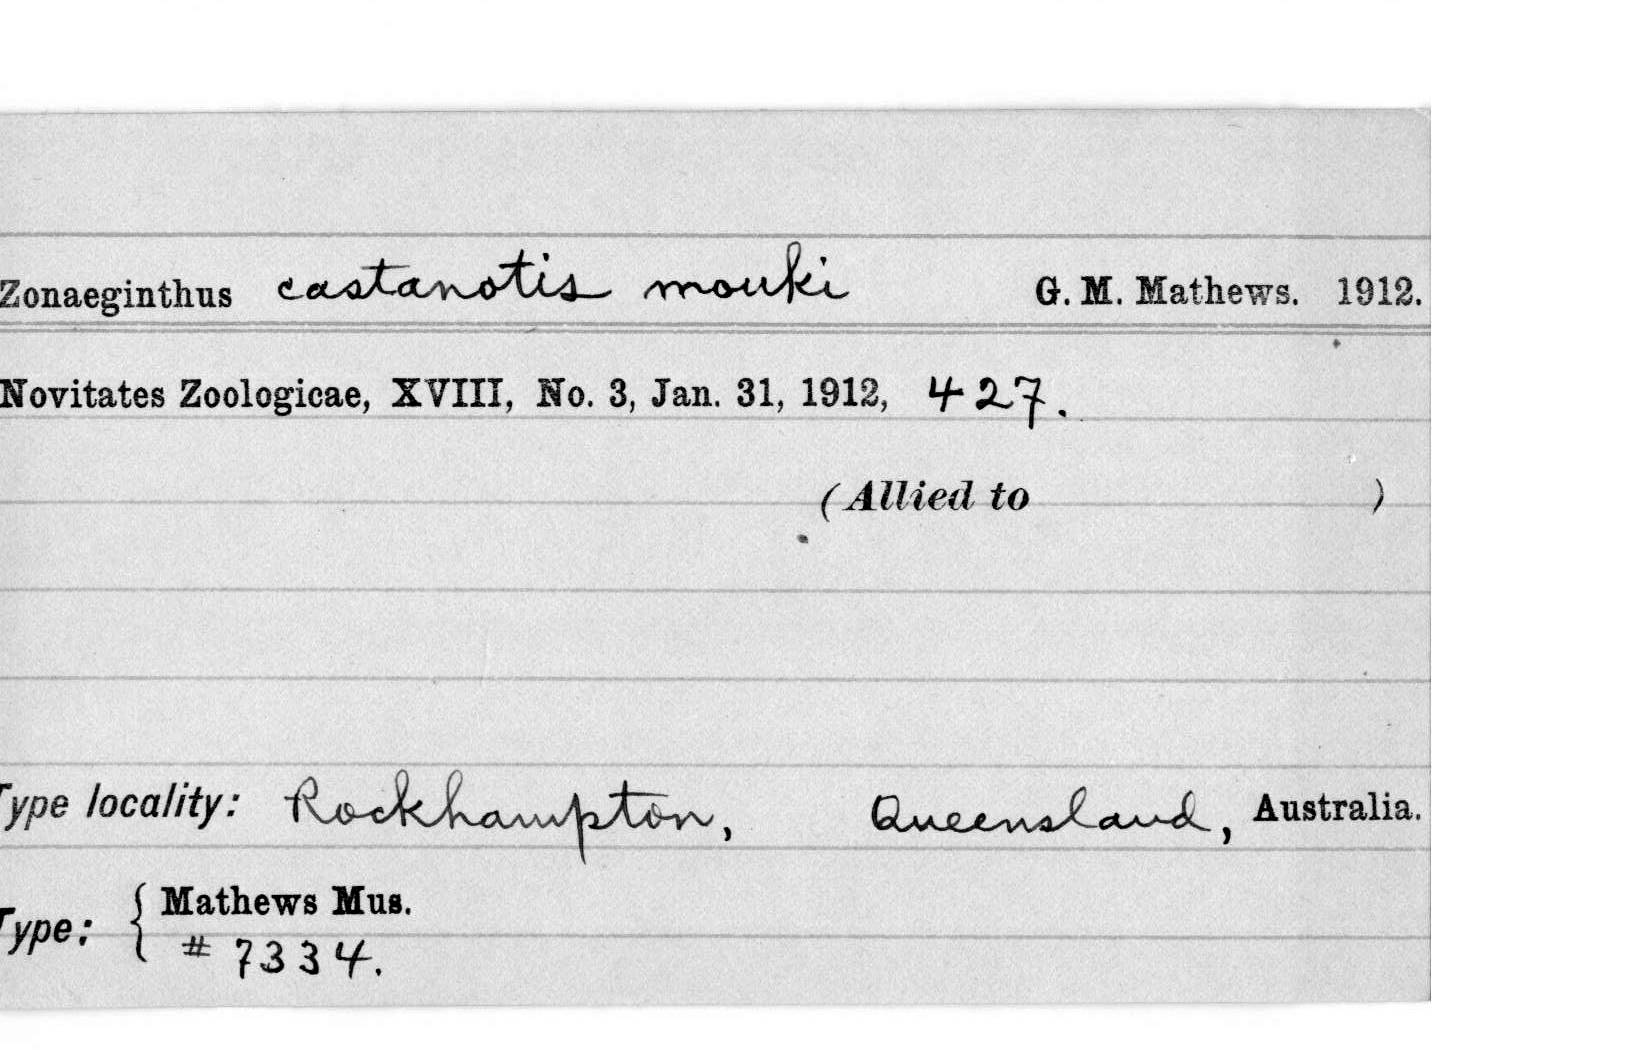 Zonaeginthus castanotis mouki G. M. Mathews. 1912.
Novitates Zoologicae, XVIII, No. 3, Jan. 31, 1912, 427.
(Allied to )
Type locality: Rockhampton, Queensland, Australia.
Type: { Mathews Mus.
# 7334.